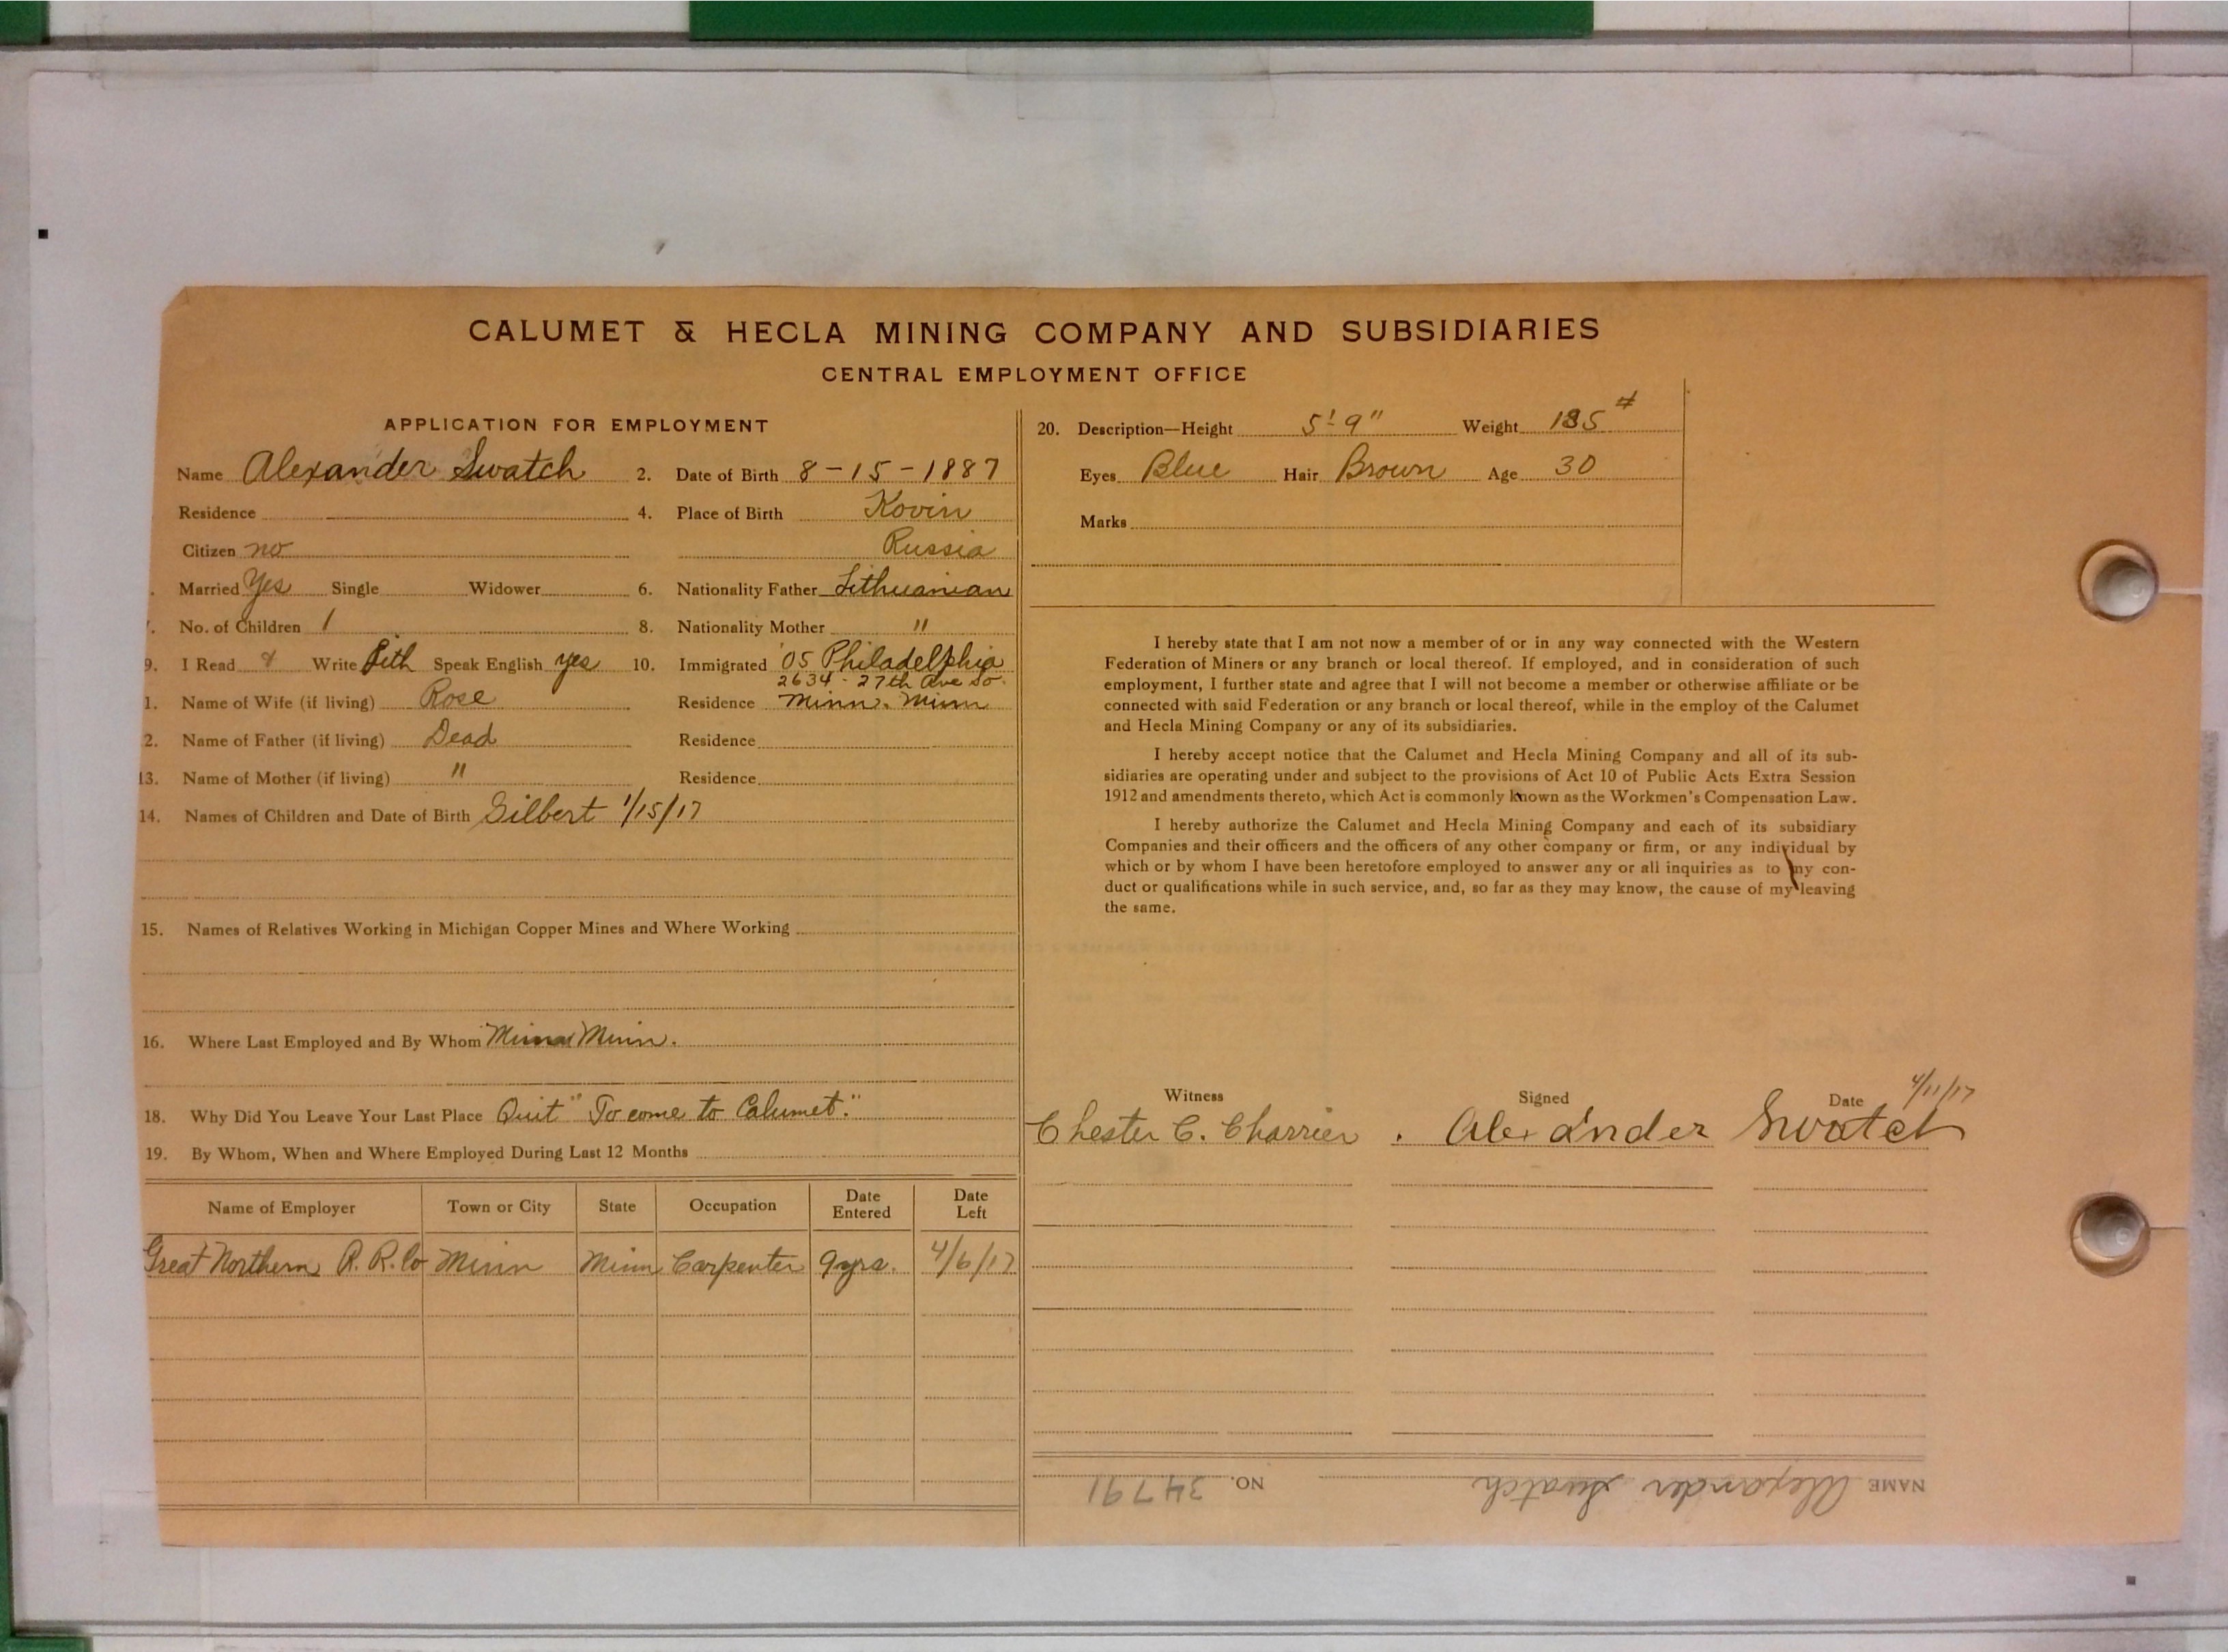 CALUMET & HECLA MINING COMPANY AND SUBSIDIARIES
CENTRAL EMPLOYMENT OFFICE
APPLICATION FOR EMPLOYMENT
Name Alexander Swatch 2. Date of Birth 8-15-1887
Residence 4. Place of Birth Kovin
Citizen no Russia
Married Yes Single Widower 6. Nationality Father Lithuanian
No. of Children 1 8. Nationality Mother "
9. I Read & Write Lith Speak English yes 10. Immigrated '05 Philadelphia
2634 - 27th Ave So.
1. Name of Wife (if living) Rose Residence Minn. Minn
2. Name of Father (if living) Dead Residence
13. Name of Mother (if living) " Residence
14. Names of Children and Date of Birth Gilbert 1/15/17
15. Names of Relatives Working in Michigan Copper Mines and Where Working
16. Where Last Employed and By Whom Minn.
18. Why Did You Leave Your Last Place Quit "To come to Calumet."
19. By Whom, When and Where Employed During Last 12 Months
Name of Employer Town or City State Occupation Date Entered Date Left
Great Northern R. R. Co Minn Minn Carpenter 9 yrs. 4/6/17
20. Description—Height 5' 9" Weight 185 #
Eyes Blue Hair Brown Age 30
Marks
I hereby state that I am not now a member of or in any way connected with the Western
Federation of Miners or any branch or local thereof. If employed, and in consideration of such
employment, I further state and agree that I will not become a member or otherwise affiliate or be
connected with said Federation or any branch or local thereof, while in the employ of the Calumet
and Hecla Mining Company or any of its subsidiaries.
I hereby accept notice that the Calumet and Hecla Mining Company and all of its sub-
sidiaries are operating under and subject to the provisions of Act 10 of Public Acts Extra Session
1912 and amendments thereto, which Act is commonly known as the Workmen's Compensation Law.
I hereby authorize the Calumet and Hecla Mining Company and each of its subsidiary
Companies and their officers and the officers of any other company or firm, or any individual by
which or by whom I have been heretofore employed to answer any or all inquiries as to my con-
duct or qualifications while in such service, and, so far as they may know, the cause of my leaving
the same.
Witness Signed Date 4/11/17
Chester C. Charrier . Alexander Swatch
NAME Alexander Swatch NO. 34791